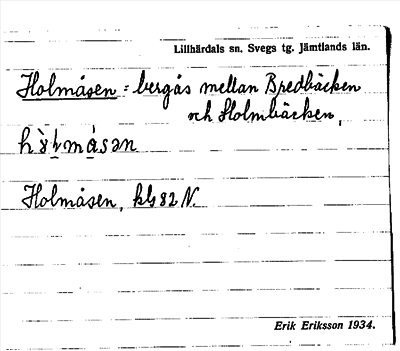 Lillhärdals sn. Svegs tg. Jämtlands län.
Holmåsen = bergås mellan Bredbäcken
och Holmbäcken.
Holmåsen, kbl 82 N.
Erik Eriksson 1934.